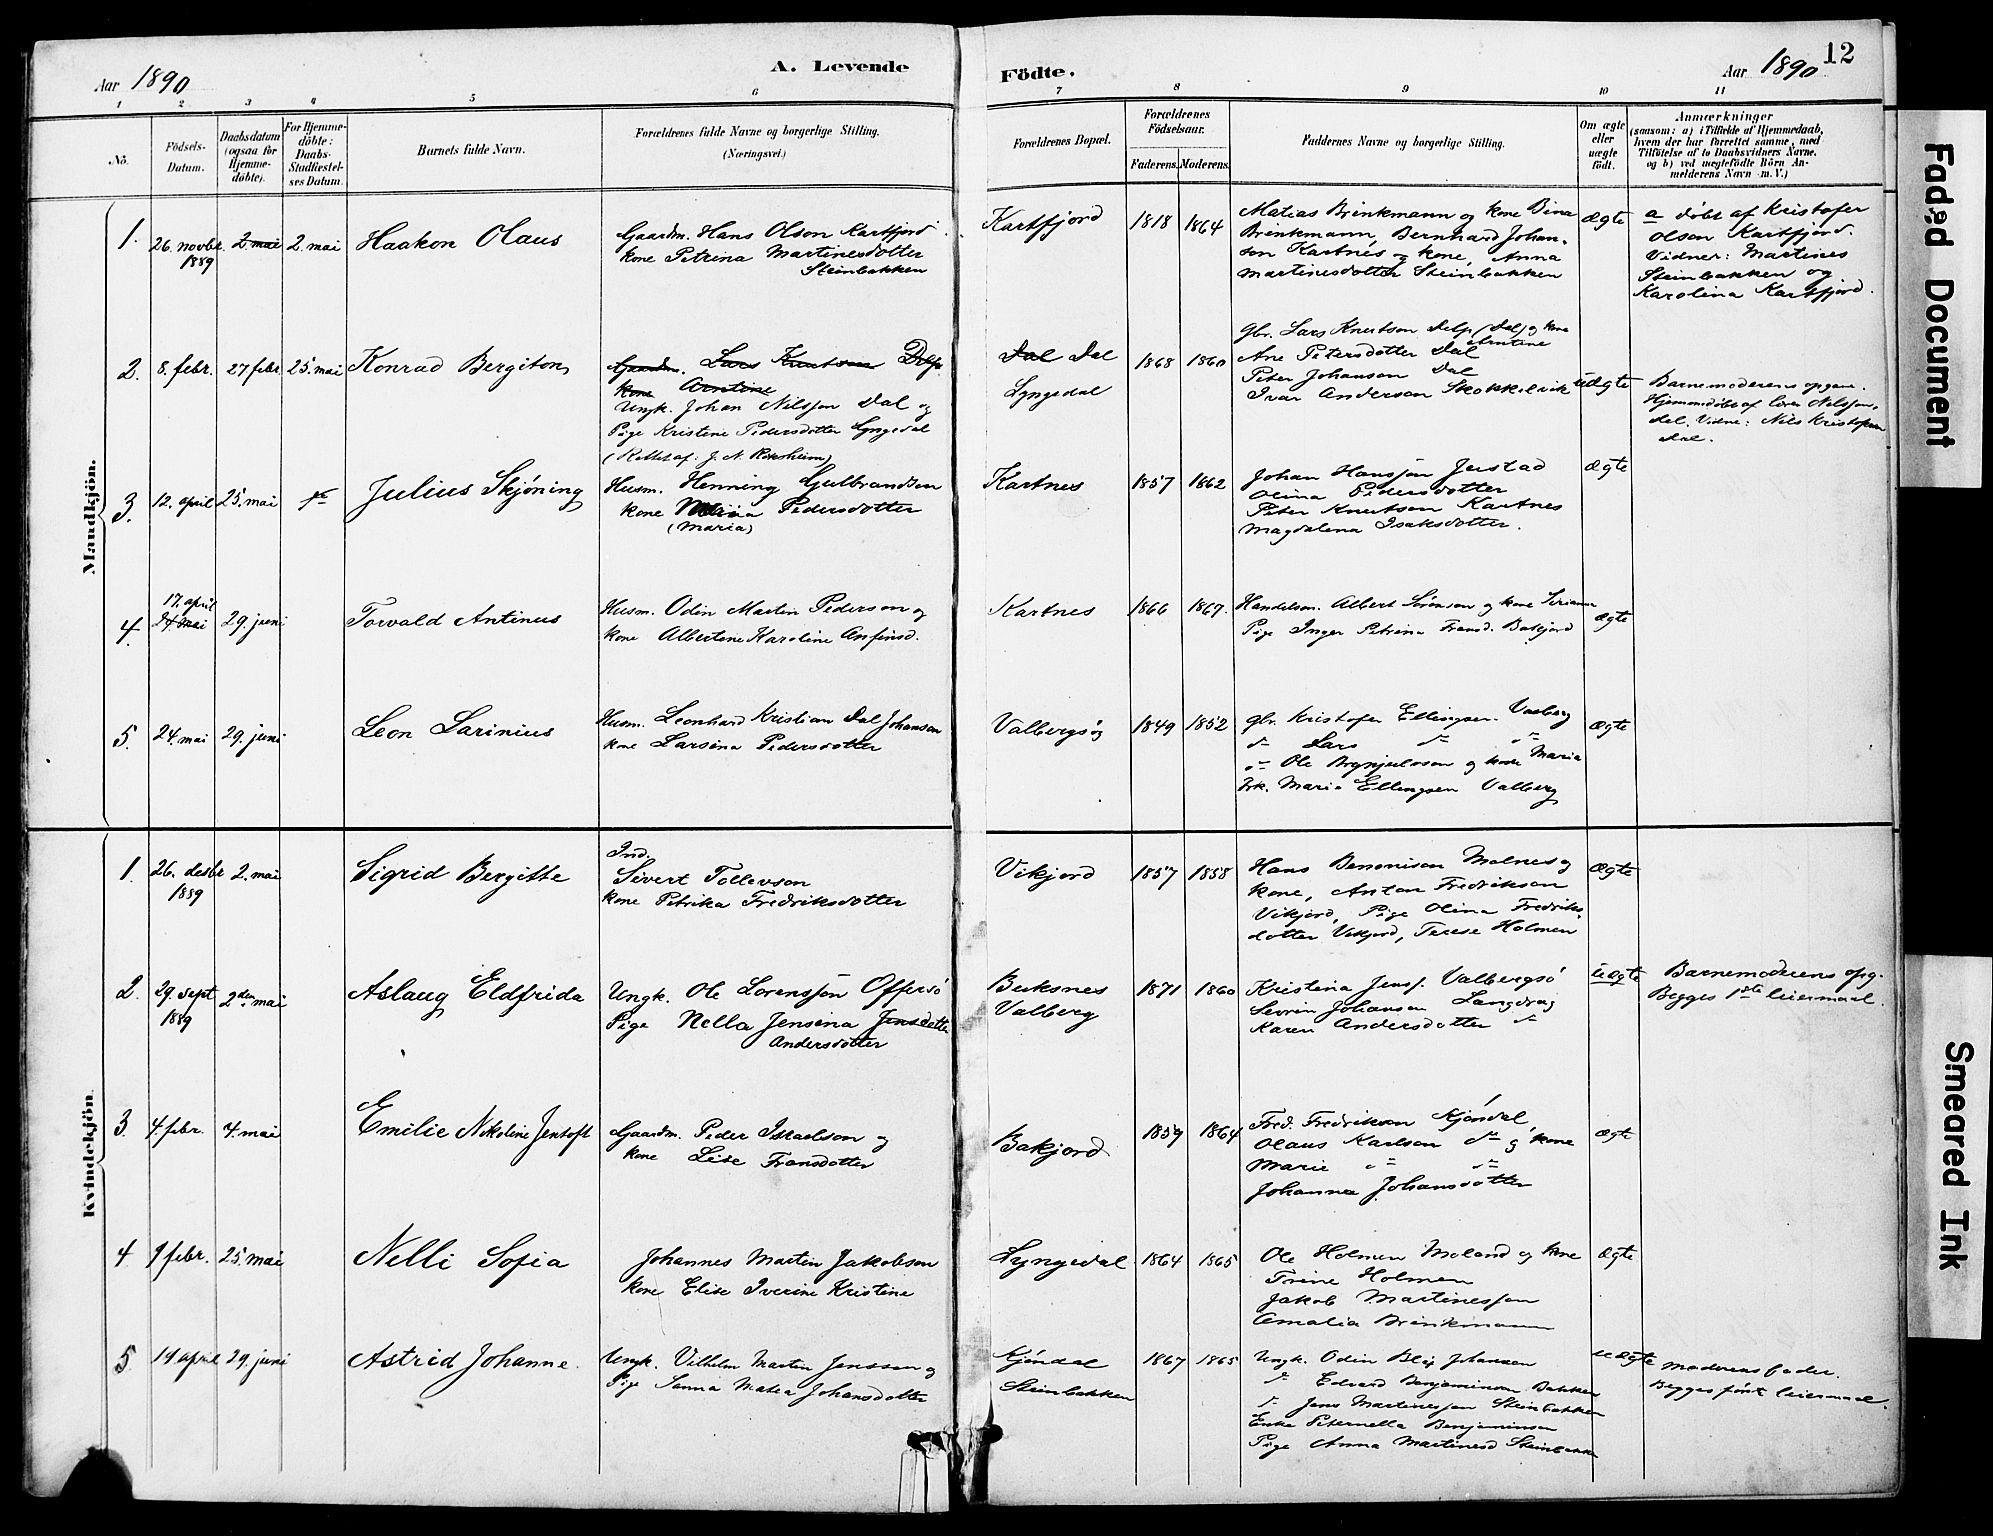 Aar 1890
A. Levende
Födte.
Aar 1890
12
1 2 3 4 5 6 7 8 9 10 11
No.
Födsels-
Datum.
Daabsdatum
(ogsaa for
Hjemme-
döbte).
For Hjemme-
döbte:
Daabs-
Stadfæstel-
ses Datum.
Barnets fulde Navn.
Forældrenes fulde Navne og borgerlige Stilling.
(Næringsvei.)
Forældrenes Bopæl.
Forældrenes
Födselsaar.
Faderens. Moderens.
Faddernes Navne og borgerlige Stilling.
Om ægte
eller
uægte
födt.
Anmærkninger
(saasom: a) i Tilfælde af Hjemmedaab,
hvem der har forrettet samme, med
Tilföielse af to Daabsvidners Navne,
og b) ved uægtefödte Börn An-
melderens Navn m. V.)
Mandkjön.
1. 26. novbr. 1889
2. mai
2. mai
Haakon Olaus
Gaardm. Hans Olson Kartfjord
kone Petrina Martinesdotter
Steinbakken
Kartfjord
1818 1864
Matias Brinkmann og kone Bina
Brinkmann, Bernhard Johan-
son Kartnes og kone, Anna
Martinesdotter Steinbakken
ægte
a döbt af Kristofer
Olson Kartfjord.
Vidner: Martines
Steinbakken og
Karolina Kartfjord.
2. 8. febr.
27 febr.
25. mai
Konrad Bergiton
Gaardm. Lars Knutson Delp
kone Arntine
Ungk. Johan Nilsson Dal og
Pige Kristine Pedersdotter Lyngedal
Dal Dal
Lyngedal
1868 1860
Gbr. Lars Knutson Delp (Dal) og kone
Arntine
Ane Petersdotter Dal
Peter Johanson Dal
Ivar Anderson Skokkelvik
uægte
Barnemoderens opgave.
Hjemmedöbt af Nilsson,
dal. Vidne: Nils Kristofersen
Dal.
3. 12. april
25. mai
Julius Skjöning
Husm. Henning Gulbrandsen
kone Pedersdotter
(Maria)
Kartnes
1857 1862
Johan Hansson Jerstad
Olina Pedersdotter
Peter Knutson Kartnes
Magdalena Isaksdotter.
ægte
4. 17. april
24 mai
29. juni
Torvald Antinus
Husm. Odin Martin Pederson og
kone Albertine Karoline Anfinsd.
Kartnes
1866 1867.
Handelsm. Albert Sörenson og kone
Pige Inger Petrina Fransd. Bakjord
ægte
5. 24. mai
29. juni
Leon Larinius
Husm. Leonhard Kristian Dal Johanson
kone Larsina Pedersdotter
Valbergsö
1849 1852
gbr. Kristofer Ellingsen Valberg
do Lars do do
do Ole Brynjulvson og kone Maria
Marie Ellingsen Valberg
ægte
Kvindekjön.
1. 26. desbr 1889
2. mai
Sigrid Bergitte
Ind.
Sivert Tollevson
kone Petrika Fredriksdotter
Vikjord
1857 1858
Hans Benonison Molnes og
kone, Anton Fredrikson
Vikjord, Pige Olina Fredriks-
dotter Vikjord, Terese Holmen
ægte
2. 29. sept 1889
2den mai
Aslaug Eldfrida
Ungk. Ole Lorensson Offersö
Pige Nella Jensina Jensdotter
Andersdotter
Buksnes
Valberg
1871 1860
Kristina Jensd. Valbergsö
Sevrin Johanson
Karen Andersdotter do
uægte
Barnemoderens opg.
Begges 1ste leiermaal.
3. 4 febr.
4. mai
Emilie Nikoline Jentoft
Gaardm. Peder Israelson og
kone Lise Fransdotter
Bakjord
1859 1864
Fred. Fredrikson Kjöndal,
Olaus Karlson do og kone
Marie do do
Johanna Johansdotter
ægte
4. 9 febr.
25. mai
Nelli Sofia
Johannes Martin Jakobson
kone Elise Iverine Kristine
Lyngedal
1864 1865
Ole Holmen Moland og kone
Trine Holmen
Jakob Martinesson
Amalia Brinkmann
ægte
5 14 april
29. juni
Astrid Johanne.
Ungk. Vilhelm Martin Jensson og
Pige Sanna Matea Johansdotter
Kjöndal
Steinbakken
1867 1865
Ungk. Odin Johansen
do Edvard Benjaminson Bakken
do Jens Martinesson Steinbakken
Enke Peternella Benjaminson
Pige Anna Martinesd Steinbakken
uægte
Moderens fader.
Begges först leiermaal.
Faded Document
Smeared Ink